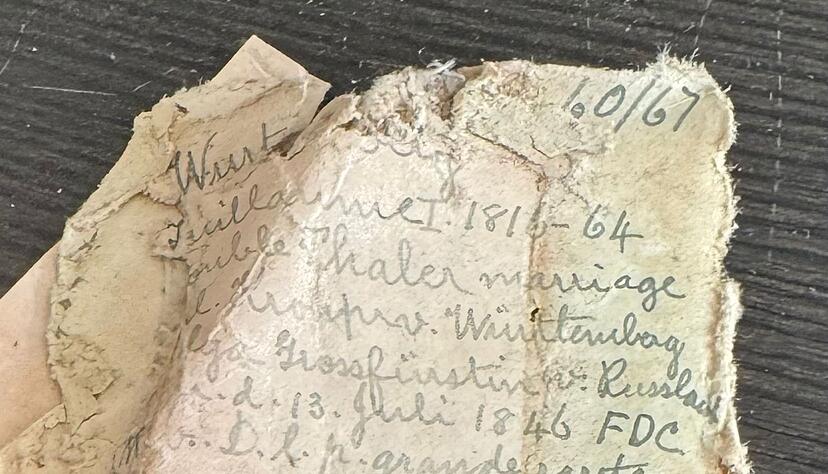 60/67
Wurt
Guillaume I. 1816-64
ouble Thaler marriage
Kronpr v. Würtemberg
lga Grossfürstin v. Russland
d. 13. Juli 1846 FDC
v. D. l. p. grande